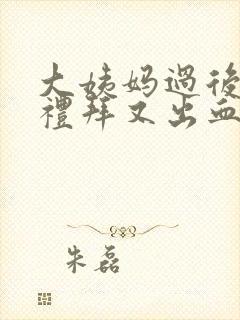 大姨妈過後
禮拜又出血
朱磊